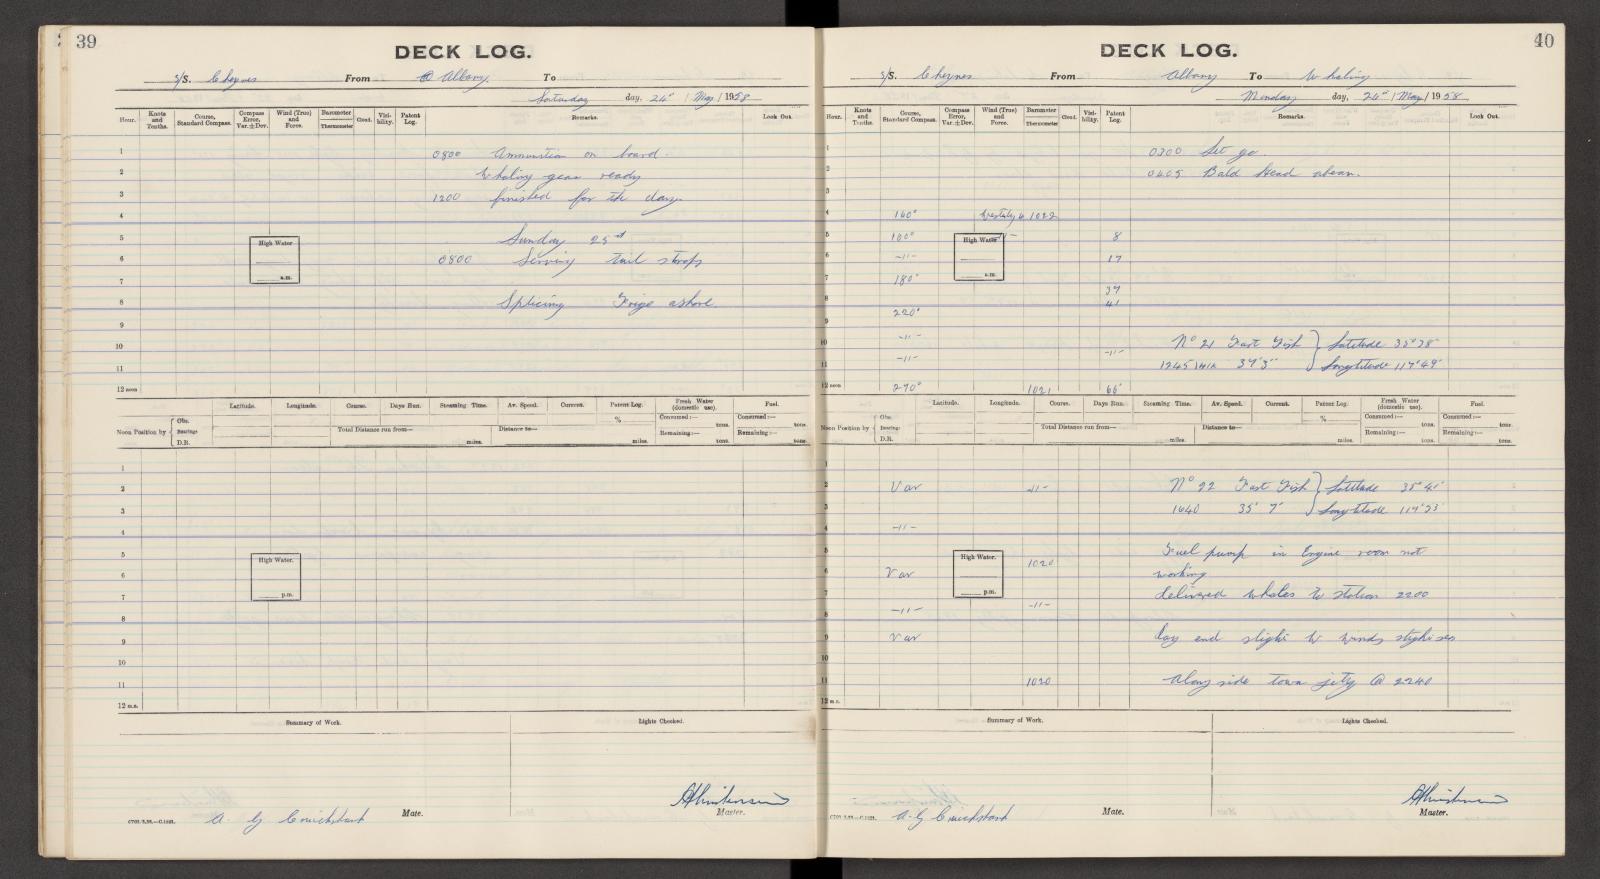 39
DECK LOG.
S/S. Cheynes From @ Albany To
Saturday day, 24" / May / 1958
Hour. Knots and Tenths. Course, Standard Compass. Compass Error, Var. ± Dev. Wind (True) and Force. Barometer Thermometer Cloud. Visibility. Patent Log. Remarks. Look Out.
1 0800 Ammunition on board.
2 Whaling gear ready
3 1200 finished for the day.
4
5 Sunday 25st
6 0800 Serving tail strops
7
8 Splicing ashore.
9
10
11
12 noon
High Water
a.m.
Latitude. Longitude. Course. Days Run. Steaming Time. Av. Speed. Current. Patent Log. Fresh Water (domestic use). Fuel.
Noon Position by { Obs. Bearing: D.R.
Total Distance run from— miles. Distance to— % Consumed:— tons. Remaining:— tons. Consumed:— tons. Remaining:— tons.
1
2
3
4
5
6
7
8
9
10
11
12 m.n.
High Water.
p.m.
Summary of Work. Lights Checked.
C702/3.56.—C.1823. A. G Cruickshank Mate. Master.
40
DECK LOG.
S/S. Cheynes From Albany To Whaling
Monday day, 26" / May / 1958
Hour. Knots and Tenths. Course, Standard Compass. Compass Error, Var. ± Dev. Wind (True) and Force. Barometer Thermometer Cloud. Visibility. Patent Log. Remarks. Look Out.
1 0300 Let go.
2 0405 Bald Head abeam.
3
4 160° Westerly 4 1022
5 160° -11- 8
6 -11- 17
7 180°
37
8 41
9 220°
10 -11- No 21 Fast Fish } Latitude 35°38'
11 -11- -11- 1245 37'3" } Longtitude 117°49'
12 noon 270° 1021 66'
High Water
a.m.
Latitude. Longitude. Course. Days Run. Steaming Time. Av. Speed. Current. Patent Log. Fresh Water (domestic use). Fuel.
Noon Position by { Obs. Bearing: D.R.
Total Distance run from— miles. Distance to— % Consumed:— tons. Remaining:— tons. Consumed:— tons. Remaining:— tons.
1
2 Var -11- No 22 Fast Fish } Latitude 35°41'
3 1640 35' 7' } Longtitude 117°53'
4 -11-
5 Fuel pump in Engine room not
6 Var 1020 working
7 delivered whales to station 2200
8 -11- -11-
9 Var Day end slight W winds slight sea
10
11 1020 Along side town jetty @ 2240
12 m.n.
High Water.
p.m.
Summary of Work. Lights Checked.
C702/3.56.—C.1823. A. G Cruickshank Mate. Master.